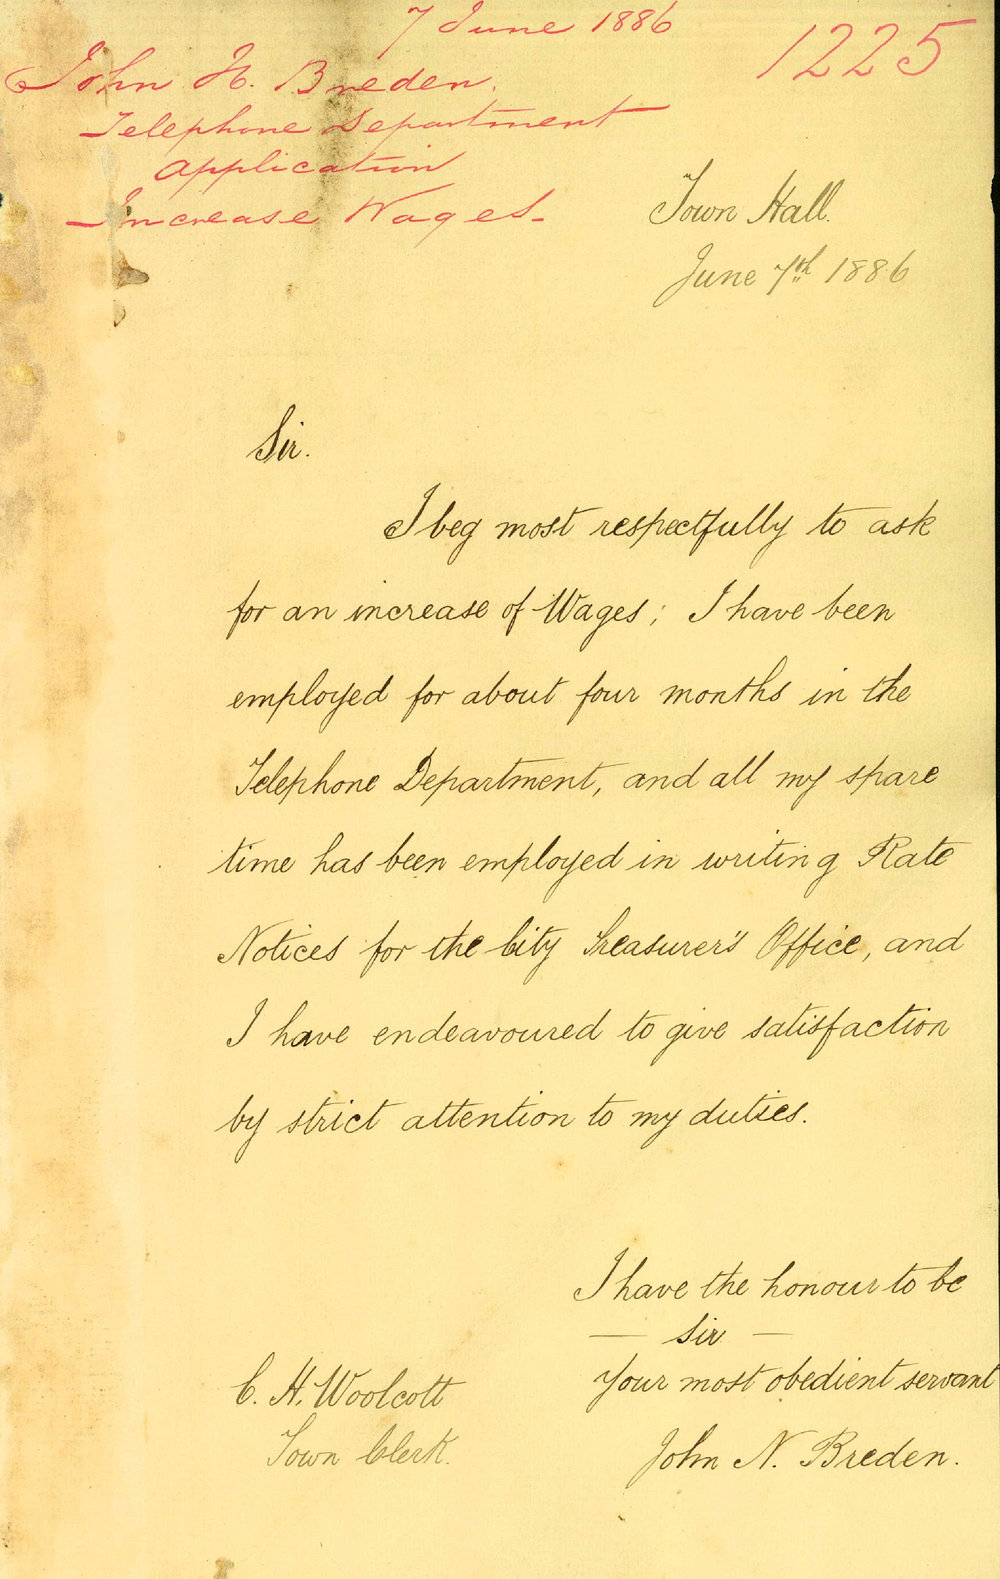 7 June 1886
1225
John H. Breden.
Telephone Department
Application
Increase Wages.
Town Hall.
June 7th 1886
Sir.
I beg most respectfully to ask
for an increase of Wages; I have been
employed for about four months in the
Telephone Department, and all my spare
time has been employed in writing Rate
Notices for the City Treasurer's Office, and
I have endeavoured to give satisfaction
by strict attention to my duties.
I have the honour to be
— Sir —
Your most obedient servant
John N. Breden.
C. H. Woolcott
Town Clerk.